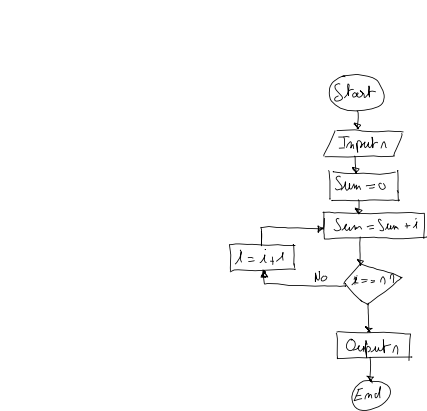 Start
Input n
Sum = 0
Sum = Sum + i
i = i + 1
No
i == n ?
Output n
End